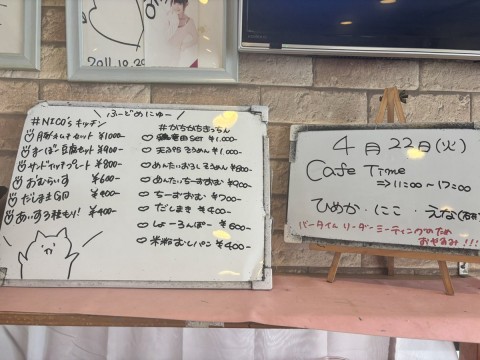 2011.10.20
ふーどめにゅー
#NICO'sキッチン
豚キムチセット ¥1000-
まーぼー豆腐セット ¥900-
サンドイッチプレート ¥800-
おむらいす ¥600-
だしまき ¥400-
あいす3種もり! ¥400-
#がちがちきっちん
SET ¥1,000-
天ぷらそうめん ¥1,000-
めんたいおろしそうめん ¥800-
めんたいちーずおむ ¥900-
ちーずおむ ¥700-
だしまき ¥400-
しょーろんぽー ¥600-
米粉むしパン ¥400-
4月22日(火)
Cafe Time
⇒11:00~17:00
ひめか・にこ・えな
バータイム リーダーミーティングのため
おやすみ!!!